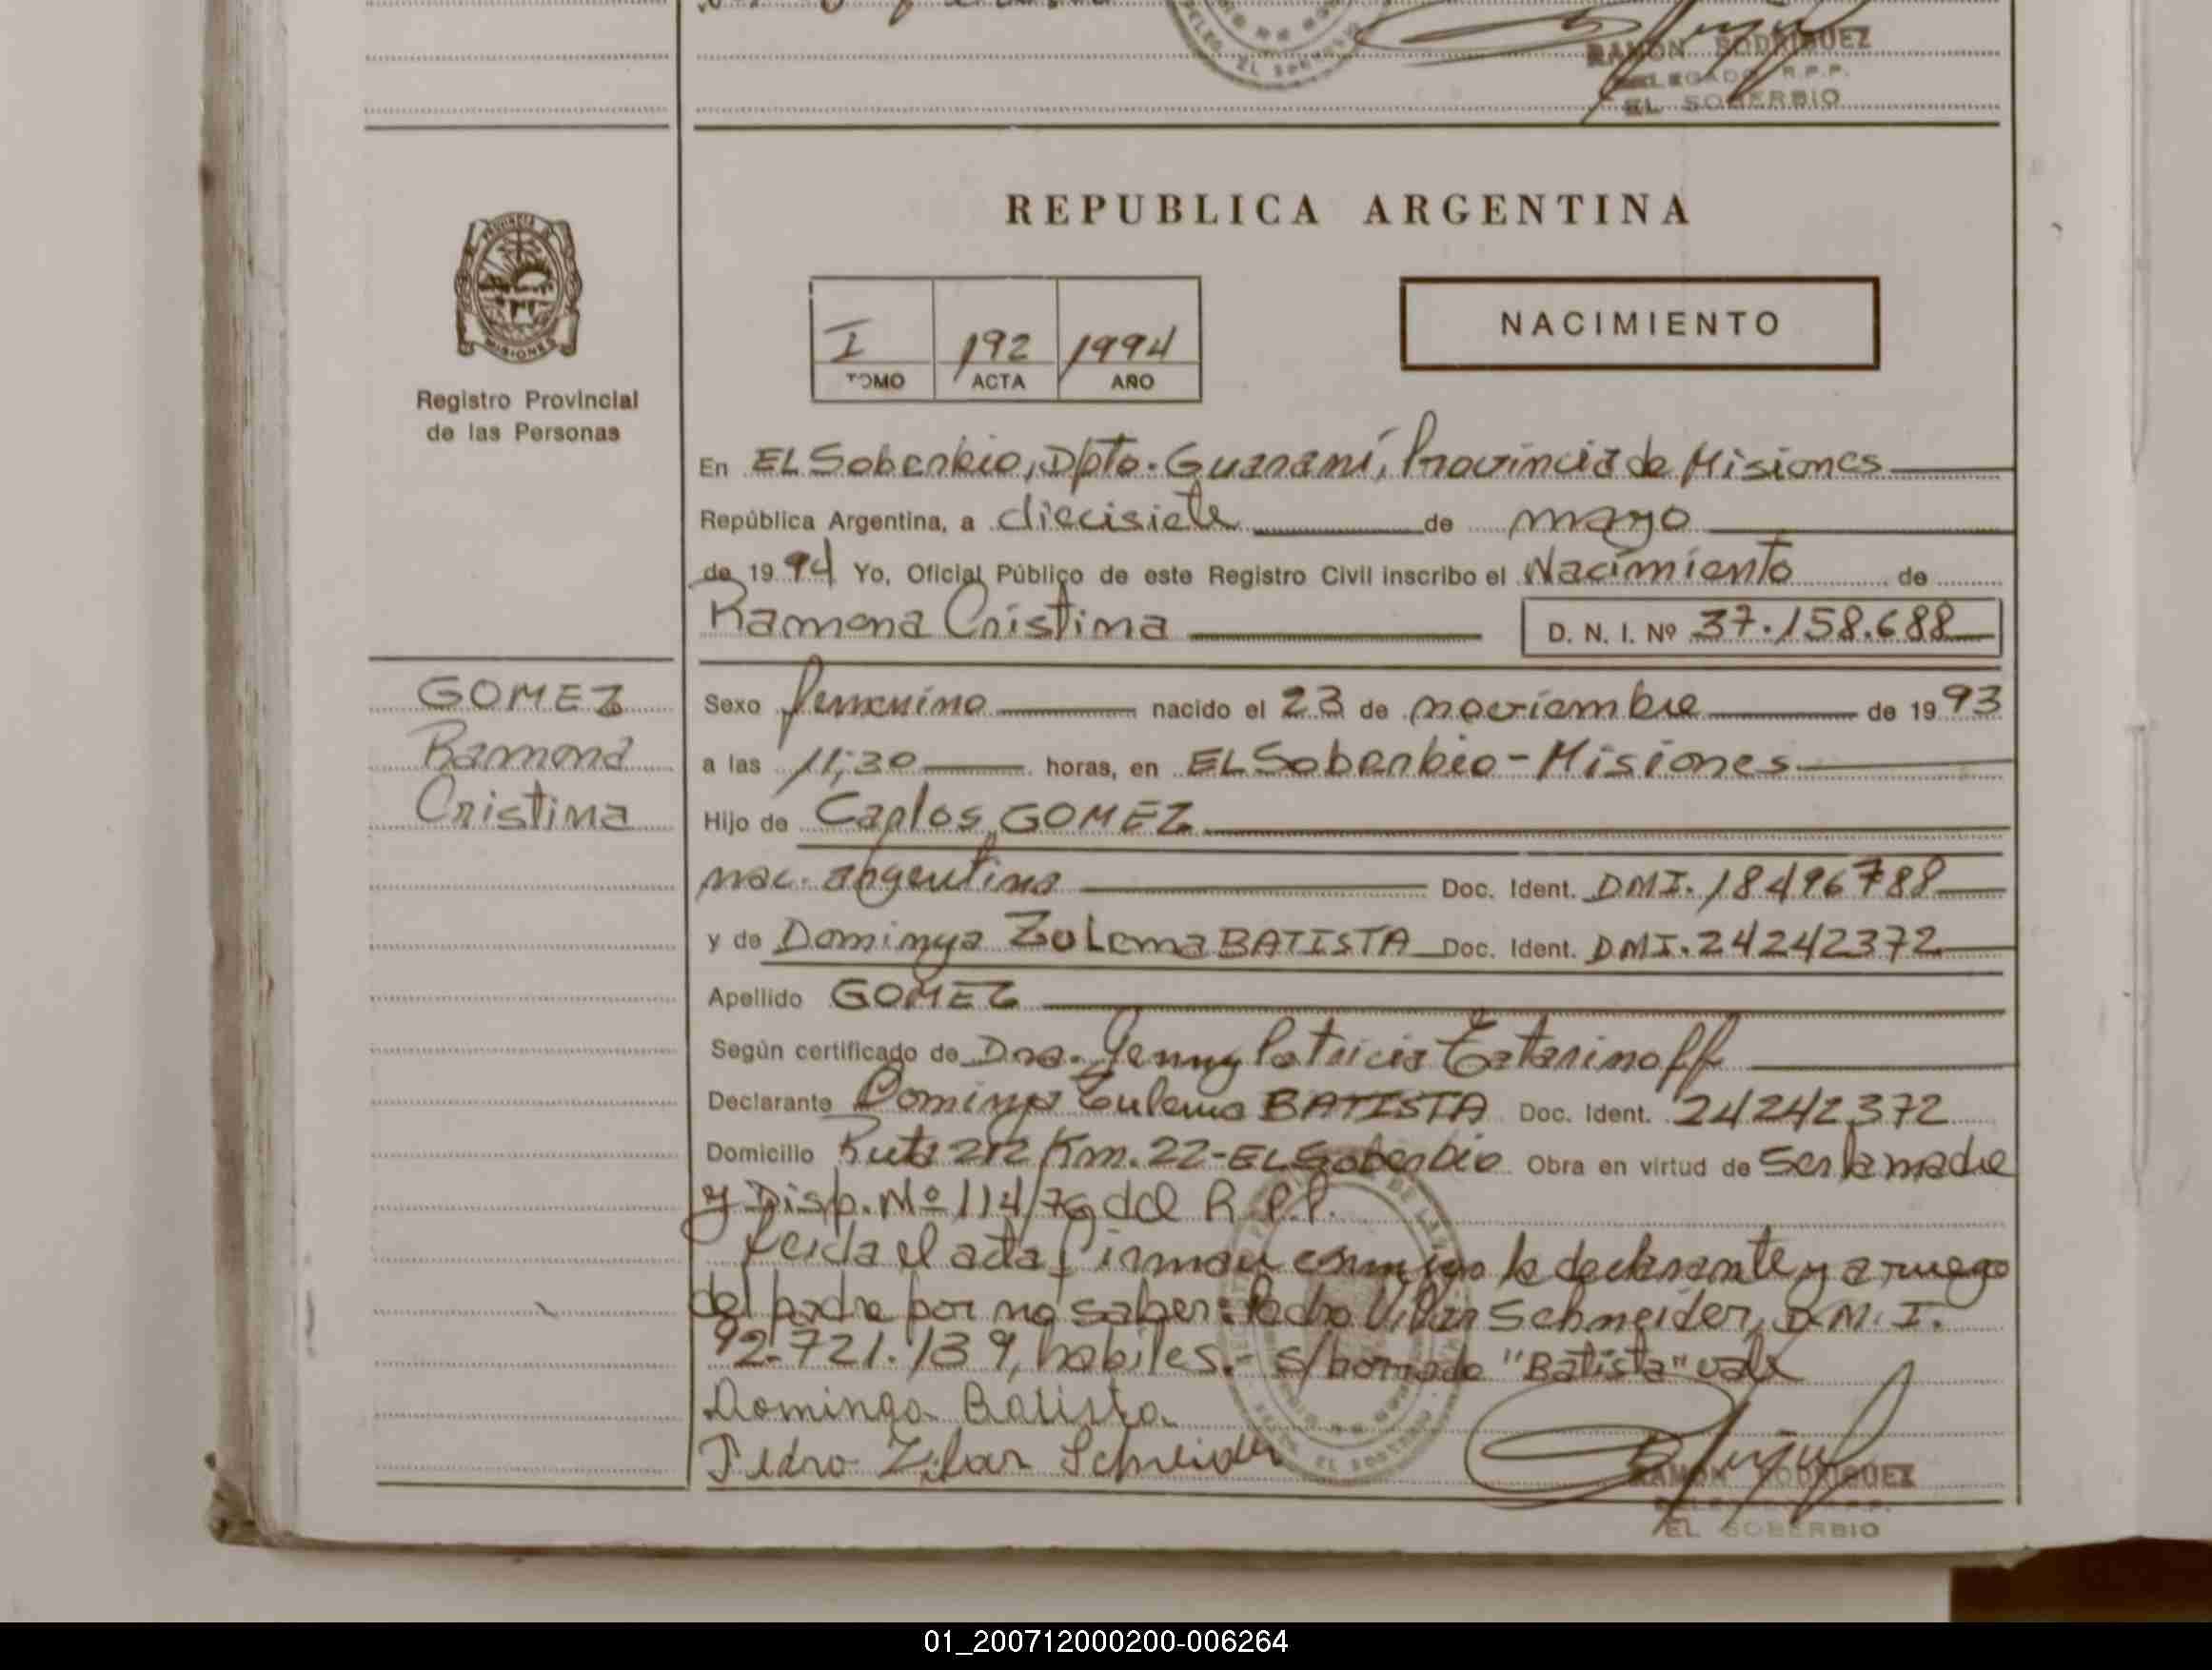 RAMON RODRIGUEZ
DELEGADO R.P.P.
EL SOBERBIO
REPUBLICA ARGENTINA
PROVINCIA DE
MISIONES
Registro Provincial
de las Personas
I 192 1994
TOMO ACTA AÑO
NACIMIENTO
En EL Soberbio, Dpto. Guaraní, Provincia de Misiones
República Argentina, a diecisiete de mayo
de 1994 Yo, Oficial Público de este Registro Civil inscribo el Nacimiento de
Ramona Cristina D. N. I. Nº 37.158.688
GOMEZ
Ramona
Cristina
Sexo femenino nacido el 23 de noviembre de 1993
a las 11,30 horas, en EL Soberbio - Misiones
Hijo de Carlos GOMEZ
nac. argentina Doc. Ident. DMI. 18496788
y de Dominga Zulema BATISTA Doc. Ident. DMI. 24242372
Apellido GOMEZ
Según certificado de Dra. Jenny Patricia Tatarinoff
Declarante Dominga Zulema BATISTA Doc. Ident. 24242372
Domicilio Ruta 212 Km. 22 - EL Soberbio Obra en virtud de Ser la madre
y Disp. Nº 114/76 del R.P.P.
Leida el acta firman conmigo la declarante y a ruego
del padre por no saber: Pedro Schneider, D.M.I.
92.721.139, habiles.- s/borrado "Batista" vale
Dominga Batista
Pedro Schneider
RAMON RODRIGUEZ
EL SOBERBIO
01_200712000200-006264